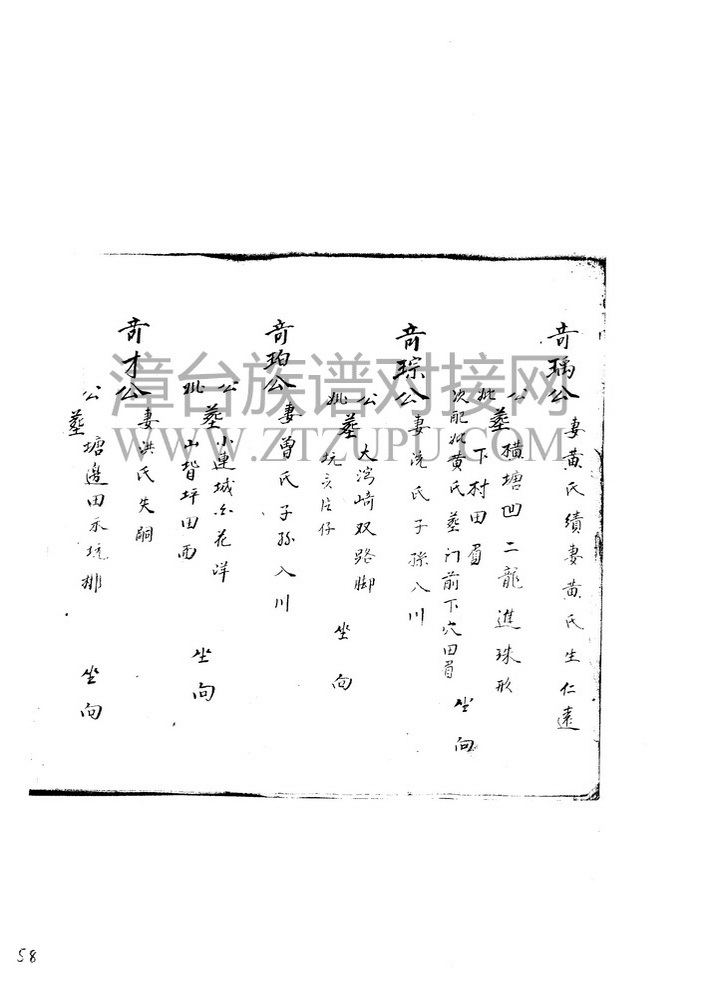 奇瑀公 妻黄氏續妻黄氏生仁遠
公 墓 横塘凹二龍進珠形
妣 下村田眉
次配妣黄氏墓门前下穴田眉 坐 向
奇琮公 妻冼氏子孫入川
公 墓 大湾崎双路脚
妣 坑 片仔 坐 向
奇珀公 妻曾氏子孫入川
公 墓 小連城 花洋
妣 山背坪田面 坐 向
奇才公 妻洪氏失嗣
公墓 塘邊田 坑排 坐 向
漳台族谱对接网
WWW.ZTZUPU.COM
58